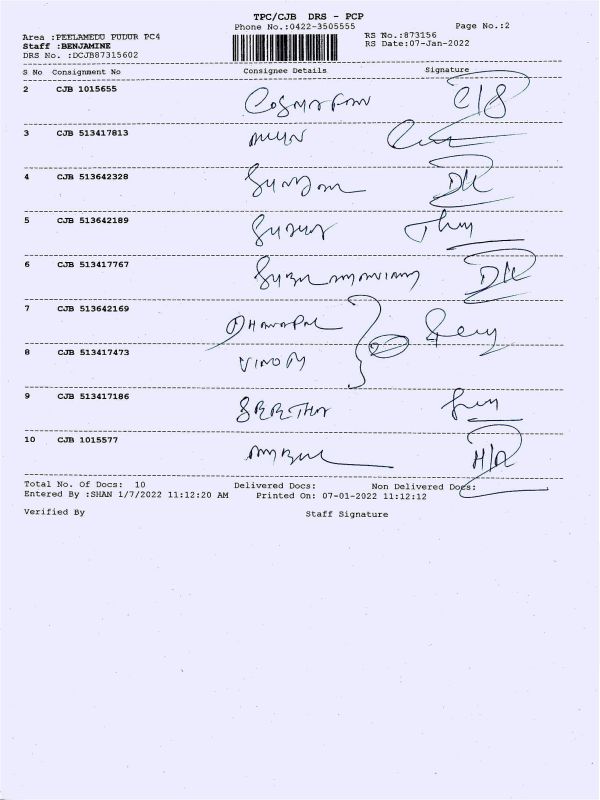 TPC/CJB DRS - PCP
Phone No.:0422-3505555
Page No.:2
Area :PEELAMEDU PUDUR PC4
RS No.:873156
Staff :BENJAMINE
RS Date:07-Jan-2022
DRS No. :DCJB87315602
S No Consignment No Consignee Details Signature
2 CJB 1015655
3 CJB 513417813
4 CJB 513642328
5 CJB 513642189
6 CJB 513417767
7 CJB 513642169 DHANAPAL
8 CJB 513417473 VINOTH
9 CJB 513417186
10 CJB 1015577
Total No. Of Docs: 10 Delivered Docs: Non Delivered Docs:
Entered By :SHAN 1/7/2022 11:12:20 AM Printed On: 07-01-2022 11:12:12
Verified By Staff Signature